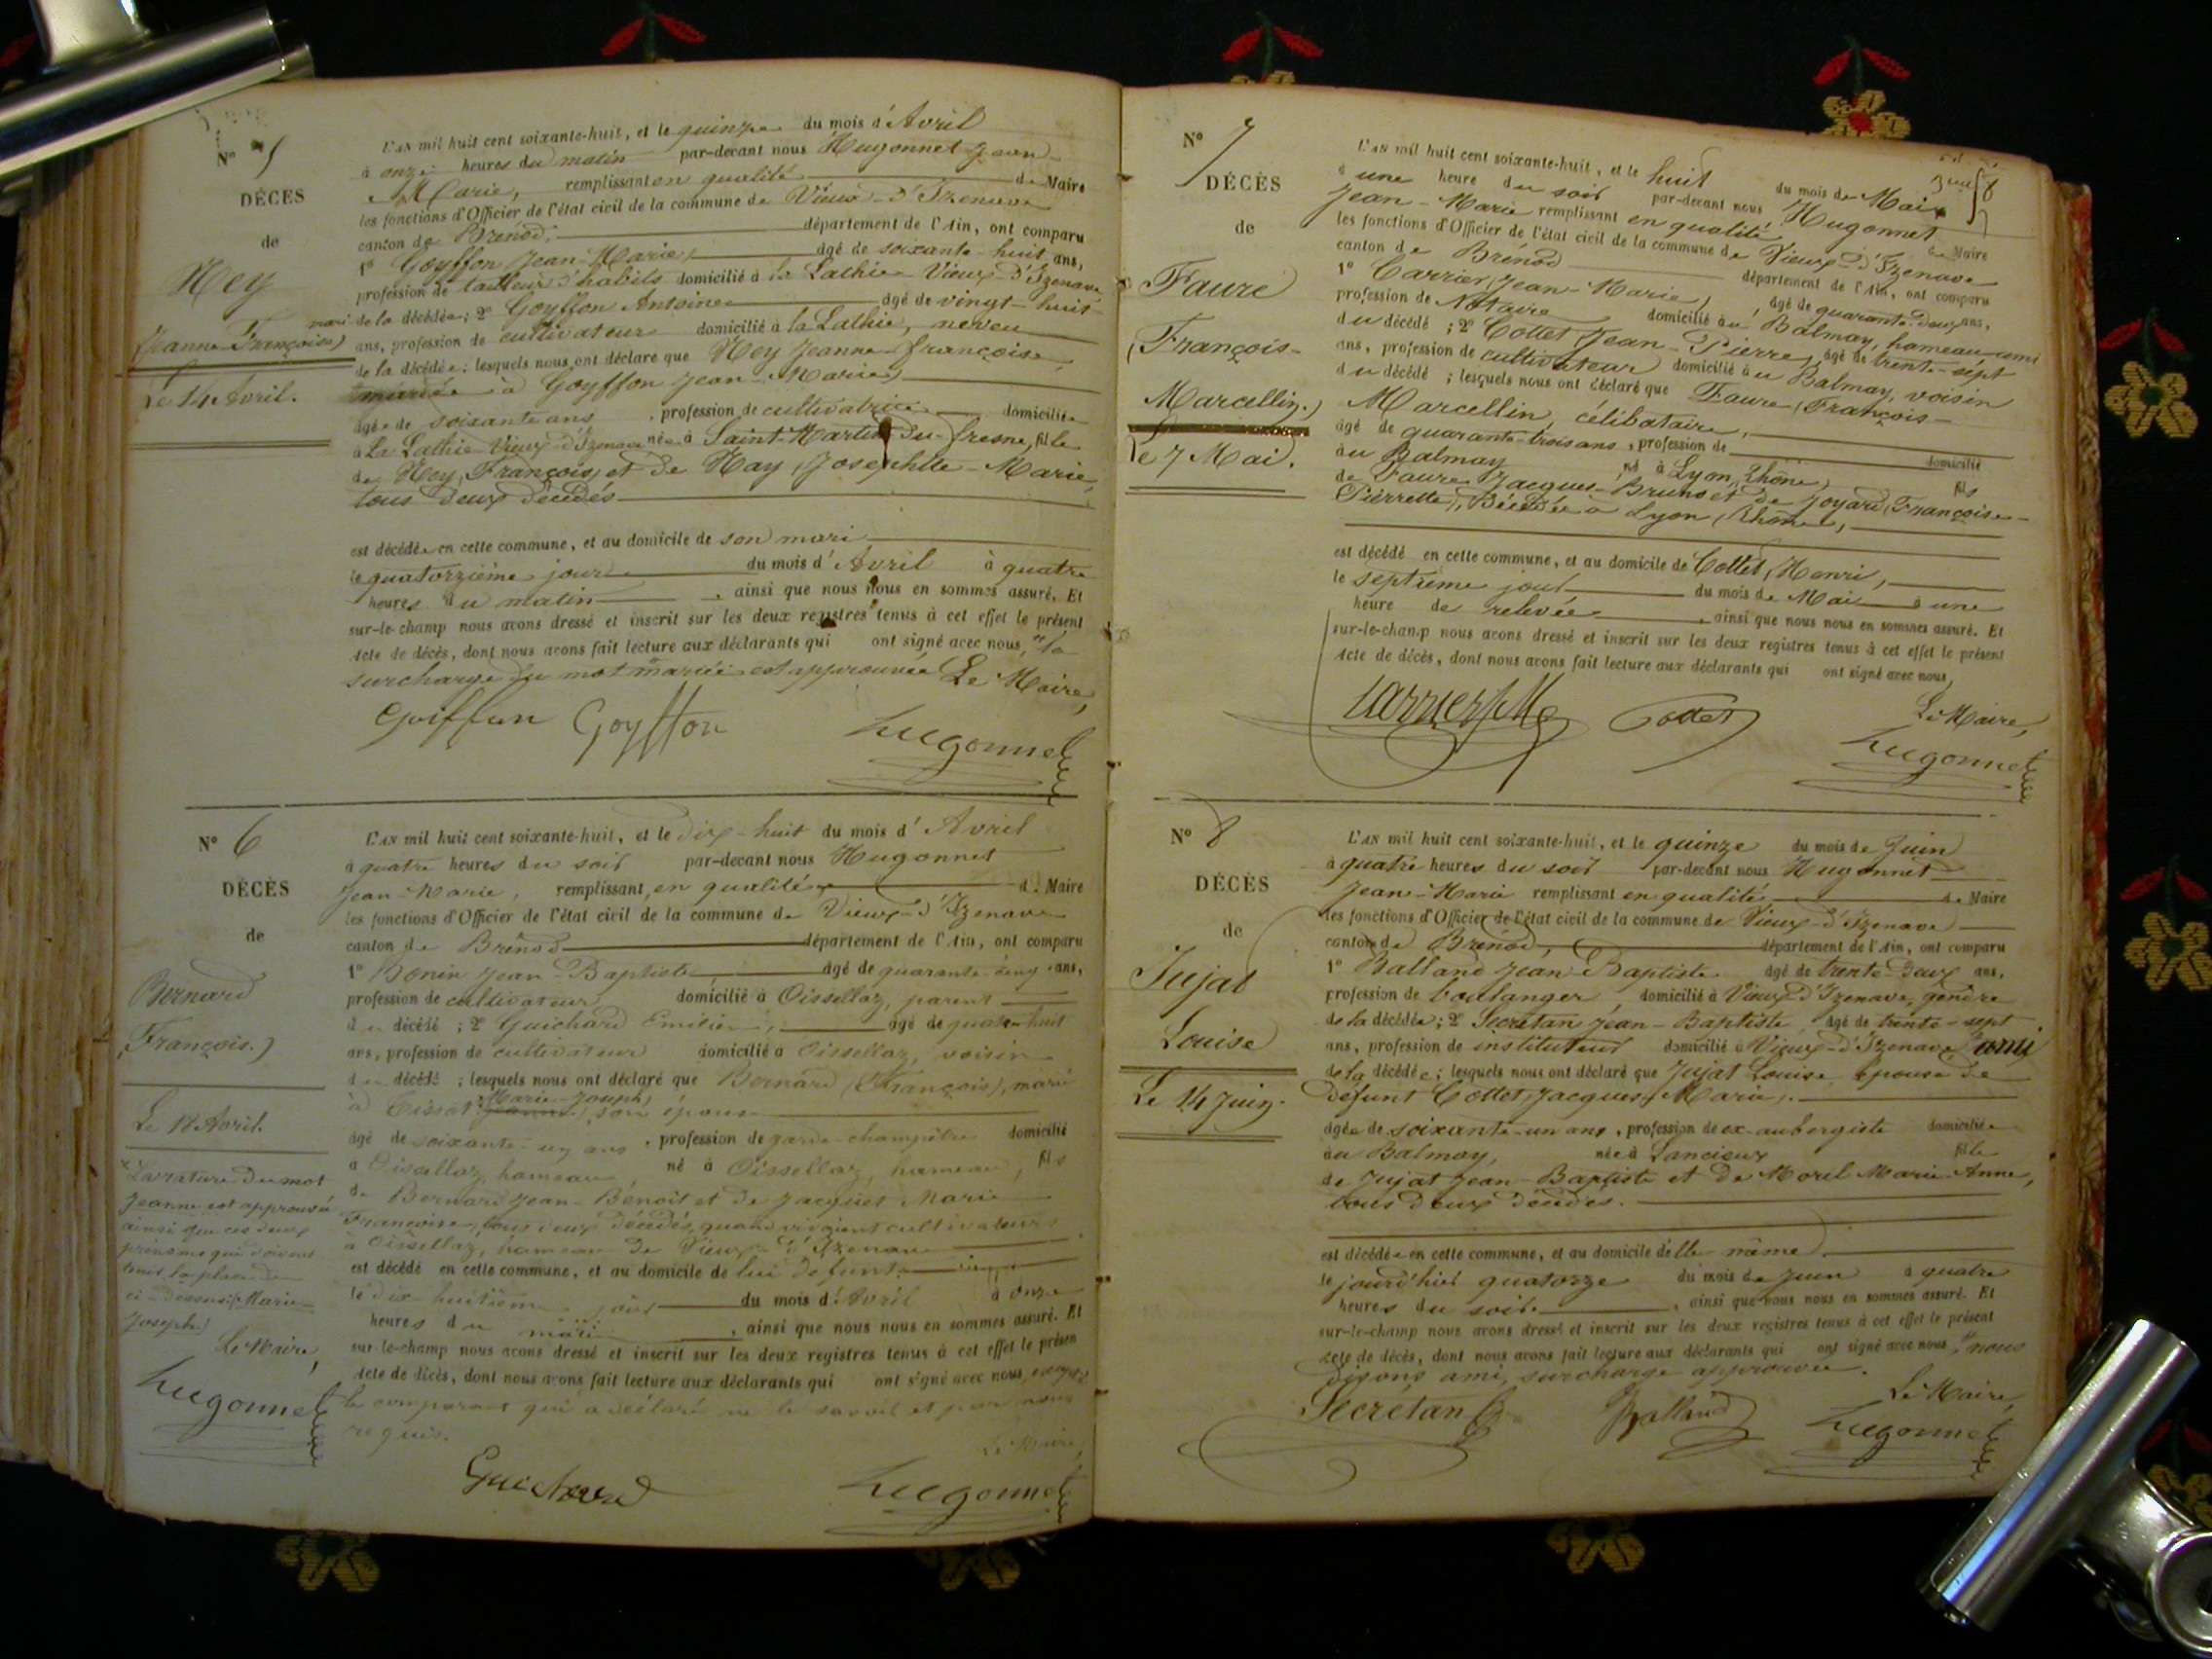 N° 5
DÉCÈS
de
Ney
Jeanne-Françoise)
Le 14 Avril.
L'AN mil huit cent soixante-huit, et le quinze du mois d'Avril
à onze heures du matin par-devant nous Hugonnet Jean
Marie, remplissant en qualité de Maire
les fonctions d'Officier de l'état civil de la commune de Vieux-d'Izenave
canton de Brénod, département de l'Ain, ont comparu
1° Goyffon Jean-Marie, âgé de soixante-huit ans,
profession de tailleur d'habits domicilié à la Lathie-Vieux-d'Izenave
mari de la décédée; 2° Goyffon Antoine âgé de vingt-huit
ans, profession de cultivateur domicilié à la Lathie, neveu
de la décédée; lesquels nous ont déclaré que Ney Jeanne-françoise,
mariée à Goyffon Jean-Marie,
âgée de soixante ans, profession de cultivatrice domiciliée
à La Lathie-Vieux-d'Izenave née à Saint-Martin-du-fresne, fille
de Ney, François, et de Nay, Josephte-Marie,
tous deux décédés
est décédée en cette commune, et au domicile de son mari
le quatorzième jour du mois d'Avril à quatre
heures du matin, ainsi que nous nous en sommes assuré. Et
sur-le-champ nous avons dressé et inscrit sur les deux registres tenus à cet effet le présent
Acte de décès, dont nous avons fait lecture aux déclarants qui ont signé avec nous, "la
surcharge du mot mariée est approuvée Le Maire,
Goiffon Goyffon Hugonnet
N° 6
DÉCÈS
de
Bernard
(François.)
Le 18 Avril.
La rature du mot
Jeanne est approuvée
ainsi que ces deux
prénoms qui doivent
tenir la place de
ci-dessus: Marie-
Joseph)
Le Maire,
Hugonnet
L'AN mil huit cent soixante-huit, et le dix-huit du mois d'Avril
à quatre heures du soir par-devant nous Hugonnet
Jean-Marie, remplissant en qualité de Maire
les fonctions d'Officier de l'état civil de la commune de Vieux-d'Izenave
canton de Brénod département de l'Ain, ont comparu
1° Bonin Jean-Baptiste âgé de quarante cinq ans,
profession de cultivateur domicilié à Oissellaz, parent
du décédé; 2° Guichard Emilien, âgé de
ans, profession de cultivateur domicilié à Oissellaz, voisin
du décédé; lesquels nous ont déclaré que Bernard (François), marié
à Tissot Marie-Joseph) son épouse
âgé de soixante-un ans, profession de garde-champêtre domicilié
à Oissellaz, hameau, né à Oissellaz, hameau, fils
de Bernard Jean-Benoît et de Jacquet Marie
Françoise, tous deux décédés, quand vivaient cultivateurs
à Oissellaz, hameau de Vieux-d'Izenave
est décédé en cette commune, et au domicile de lui défunt
le dix-huitième jour du mois d'Avril à onze
heures du matin, ainsi que nous nous en sommes assuré. Et
sur-le-champ nous avons dressé et inscrit sur les deux registres tenus à cet effet le présent
Acte de décès, dont nous avons fait lecture aux déclarants qui ont signé avec nous, excepté
le comparant qui a déclaré ne le savoir et par nous
requis.
Le Maire,
Guichard Hugonnet
N° 7
DÉCÈS
de
Faure
(François-
Marcellin.)
le 7 Mai.
L'AN mil huit cent soixante-huit, et le huit du mois de Mai
à une heure du soir par-devant nous Hugonnet
Jean-Marie remplissant en qualité de Maire
les fonctions d'Officier de l'état civil de la commune de Vieux-d'Izenave
canton de Brénod département de l'Ain, ont comparu
1° Carrier (Jean-Marie), âgé de quarante-deux ans,
profession de Notaire domicilié au Balmay, hameau ami
du décédé; 2° Cottet Jean-Pierre, âgé de trente-sept
ans, profession de cultivateur domicilié au Balmay, voisin
du décédé; lesquels nous ont déclaré que Faure, (François-
Marcellin, célibataire,
âgé de quarante-trois ans, profession de domicilié
au Balmay né à Lyon, Rhône, fils
de Faure Jacques-Bruno et de Joyard, Françoise-
Pierrette), Décédée à Lyon (Rhône),
est décédé en cette commune, et au domicile de Cottet, Henri,
le septième jour du mois de Mai à une
heure de relevée, ainsi que nous nous en sommes assuré. Et
sur-le-champ nous avons dressé et inscrit sur les deux registres tenus à cet effet le présent
Acte de décès, dont nous avons fait lecture aux déclarants qui ont signé avec nous,
Le Maire,
Carrier JM Cottet Hugonnet
N° 8
DÉCÈS
de
Jujat
Louise
Le 14 Juin.
L'AN mil huit cent soixante-huit, et le quinze du mois de Juin
à quatre heures du soir par-devant nous Hugonnet
Jean-Marie remplissant en qualité de Maire
les fonctions d'Officier de l'état civil de la commune de Vieux-d'Izenave
canton de Brénod, département de l'Ain, ont comparu
1° Balland Jean Baptiste âgé de trente-deux ans,
profession de boulanger domicilié à Vieux d'Izenave, gendre
de la décédée; 2° Secrétan Jean-Baptiste âgé de trente-sept
ans, profession de instituteur domicilié à Vieux-d'Izenave ami
de la décédée; lesquels nous ont déclaré que Jujat Louise épouse de
défunt Cottet Jacques-Marie,
âgée de soixante-un ans, profession de ex-aubergiste domiciliée
au Balmay, née à Lancieux fille
de Jujat Jean-Baptiste et de Moril Marie-Anne,
tous deux décédés.
est décédée en cette commune, et au domicile d'elle-même
le jourd'hier quatorze du mois de Juin à quatre
heures du soir, ainsi que nous nous en sommes assuré. Et
sur-le-champ nous avons dressé et inscrit sur les deux registres tenus à cet effet le présent
Acte de décès, dont nous avons fait lecture aux déclarants qui ont signé avec nous, "nous
disons ami, surcharge approuvée.
Le Maire,
Secrétan Balland Hugonnet